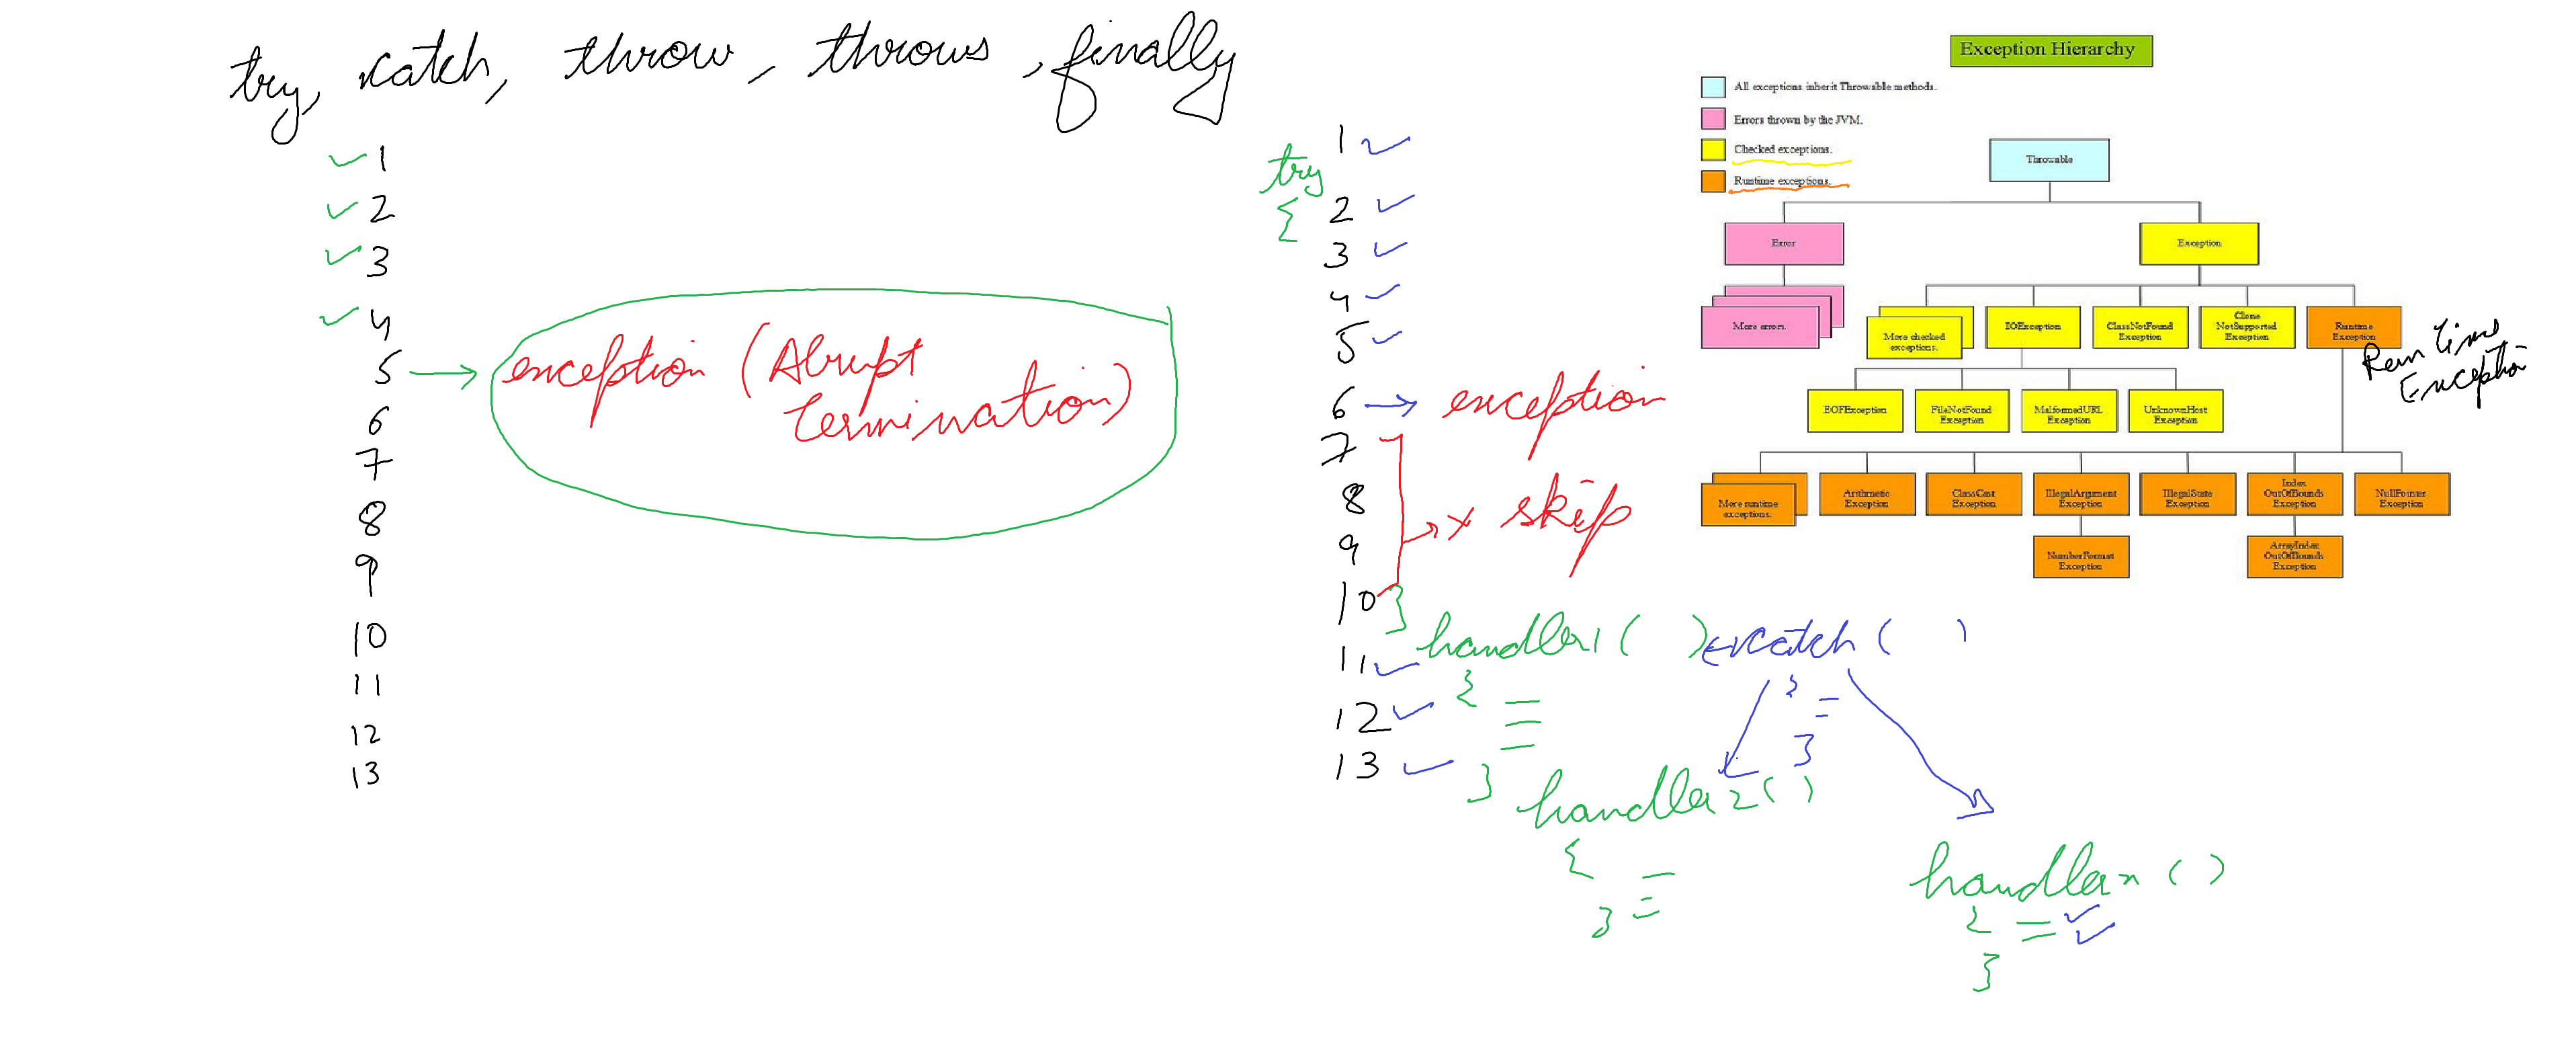 try, catch, throw, throws, finally
1
2
3
4
5 → exception (Abrupt
termination)
6
7
8
9
10
11
12
13
1
try
{ 2
3
4
5
6 → exception
7
8 x skip
9
10 }
11 handler1 ( ) ← catch ( )
{ {
12 =
}
13
} handler2 ( )
{
} =
handlern ( )
{ =
}
Exception Hierarchy
All exceptions inherit Throwable methods.
Errors thrown by the JVM.
Checked exceptions.
Runtime exceptions.
Throwable
Error
Exception
More errors.
More checked
exceptions.
IOException
ClassNotFound
Exception
Clone
NotSupported
Exception
Runtime
Exception
Run time
Exception
EOFException
FileNotFound
Exception
MalformedURL
Exception
UnknownHost
Exception
More runtime
exceptions.
Arithmetic
Exception
ClassCast
Exception
IllegalArgument
Exception
IllegalState
Exception
Index
OutOfBounds
Exception
NullPointer
Exception
NumberFormat
Exception
ArrayIndex
OutOfBounds
Exception